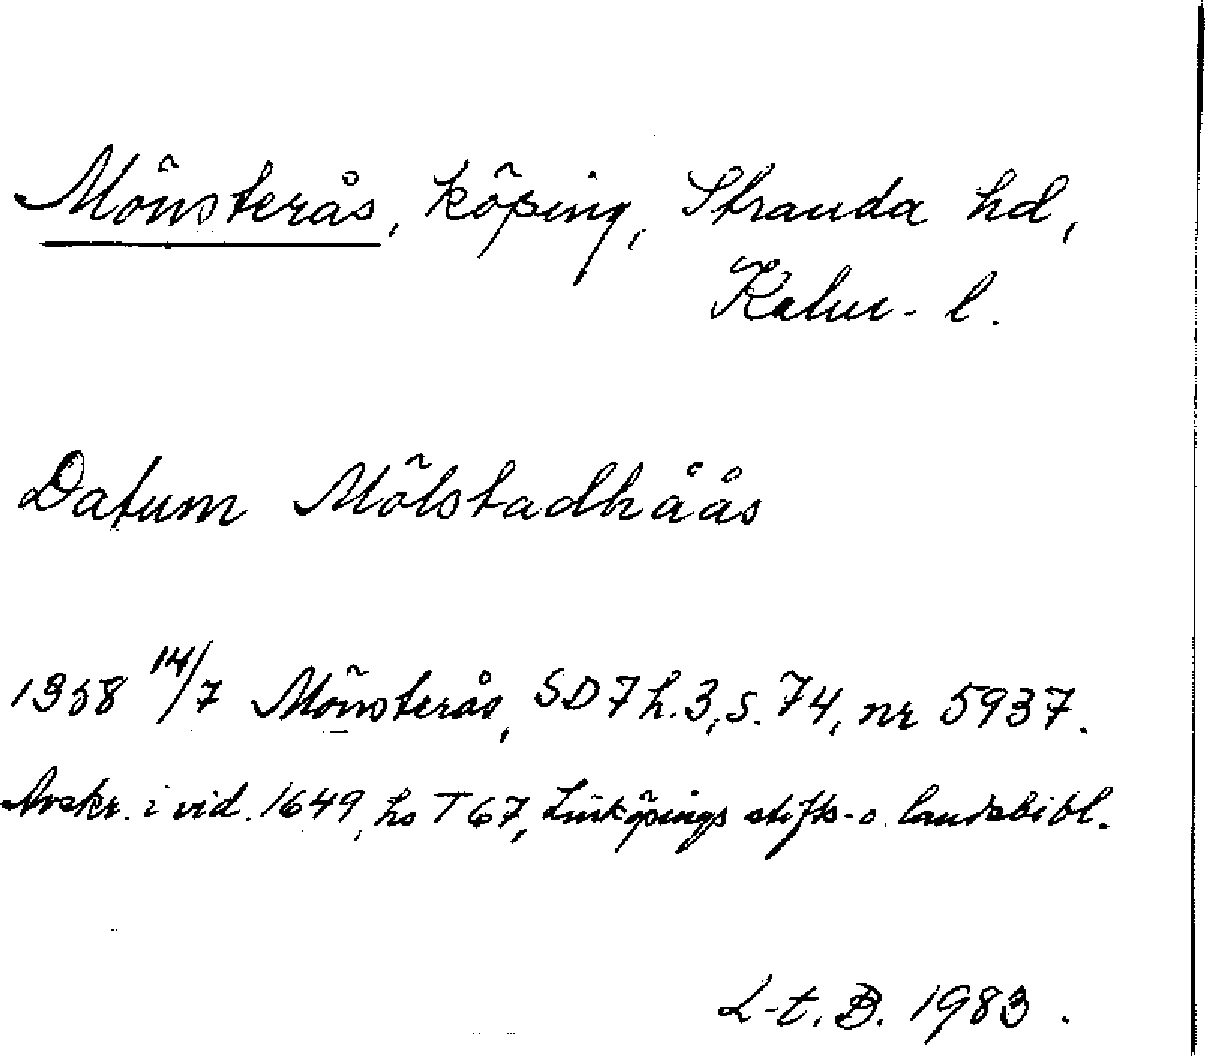 Mönsterås, köping, Stranda hd,
Kalm. l.
Datum Mölstadhåås
1358 14/7 Mönsterås, SD 7 h. 3, s. 74, nr 5937.
Avskr. i vid. 1649, hs T 67, Linköpings stifts- o. landsbibl.
L-t. B. 1983.